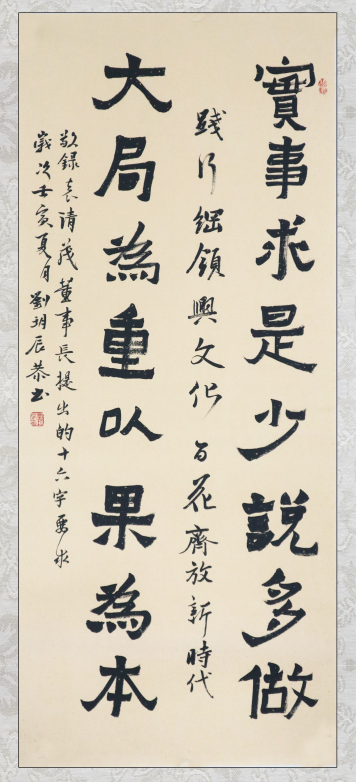 實事求是少說多做
踐行綱領興文化 百花齊放新時代
大局為重以果為本
敬錄袁清茂董事長提出的十六字要求
歲次壬寅夏月劉玥辰恭書